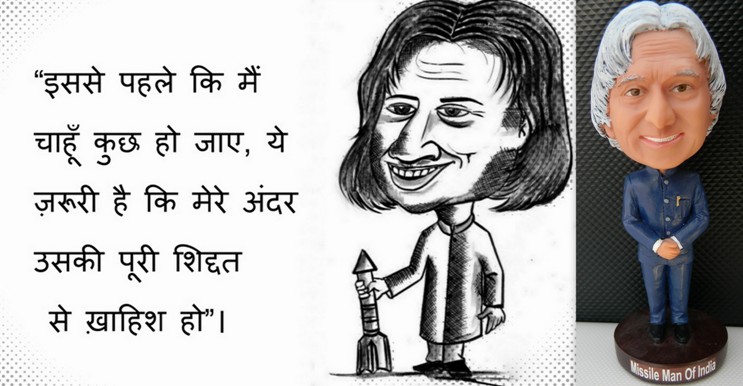 “इससे पहले कि मैं
चाहूँ कुछ हो जाए, ये
ज़रूरी है कि मेरे अंदर
उसकी पूरी शिद्दत
से ख़ाहिश हो”।
Missile Man Of India